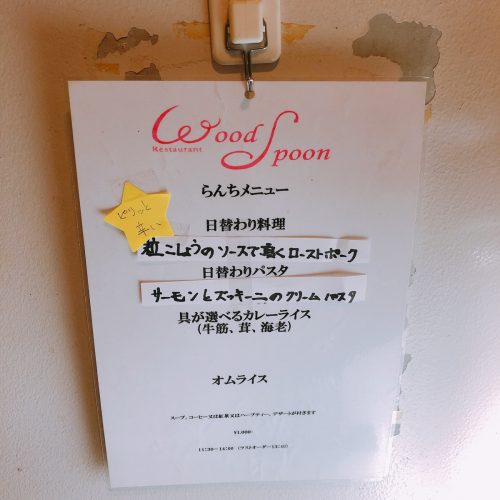 Wood Spoon
Restaurant
らんちメニュー
ピリッと
辛い
日替わり料理
粒こしょうのソースで頂くローストポーク
日替わりパスタ
サーモンとズッキーニのクリームパスタ
具が選べるカレーライス
(牛筋、茸、海老)
オムライス
スープ、コーヒー又は紅茶又はハーブティー、デザートが付きます
¥1,000-
11:30~14:00 (ラストオーダー13:30)